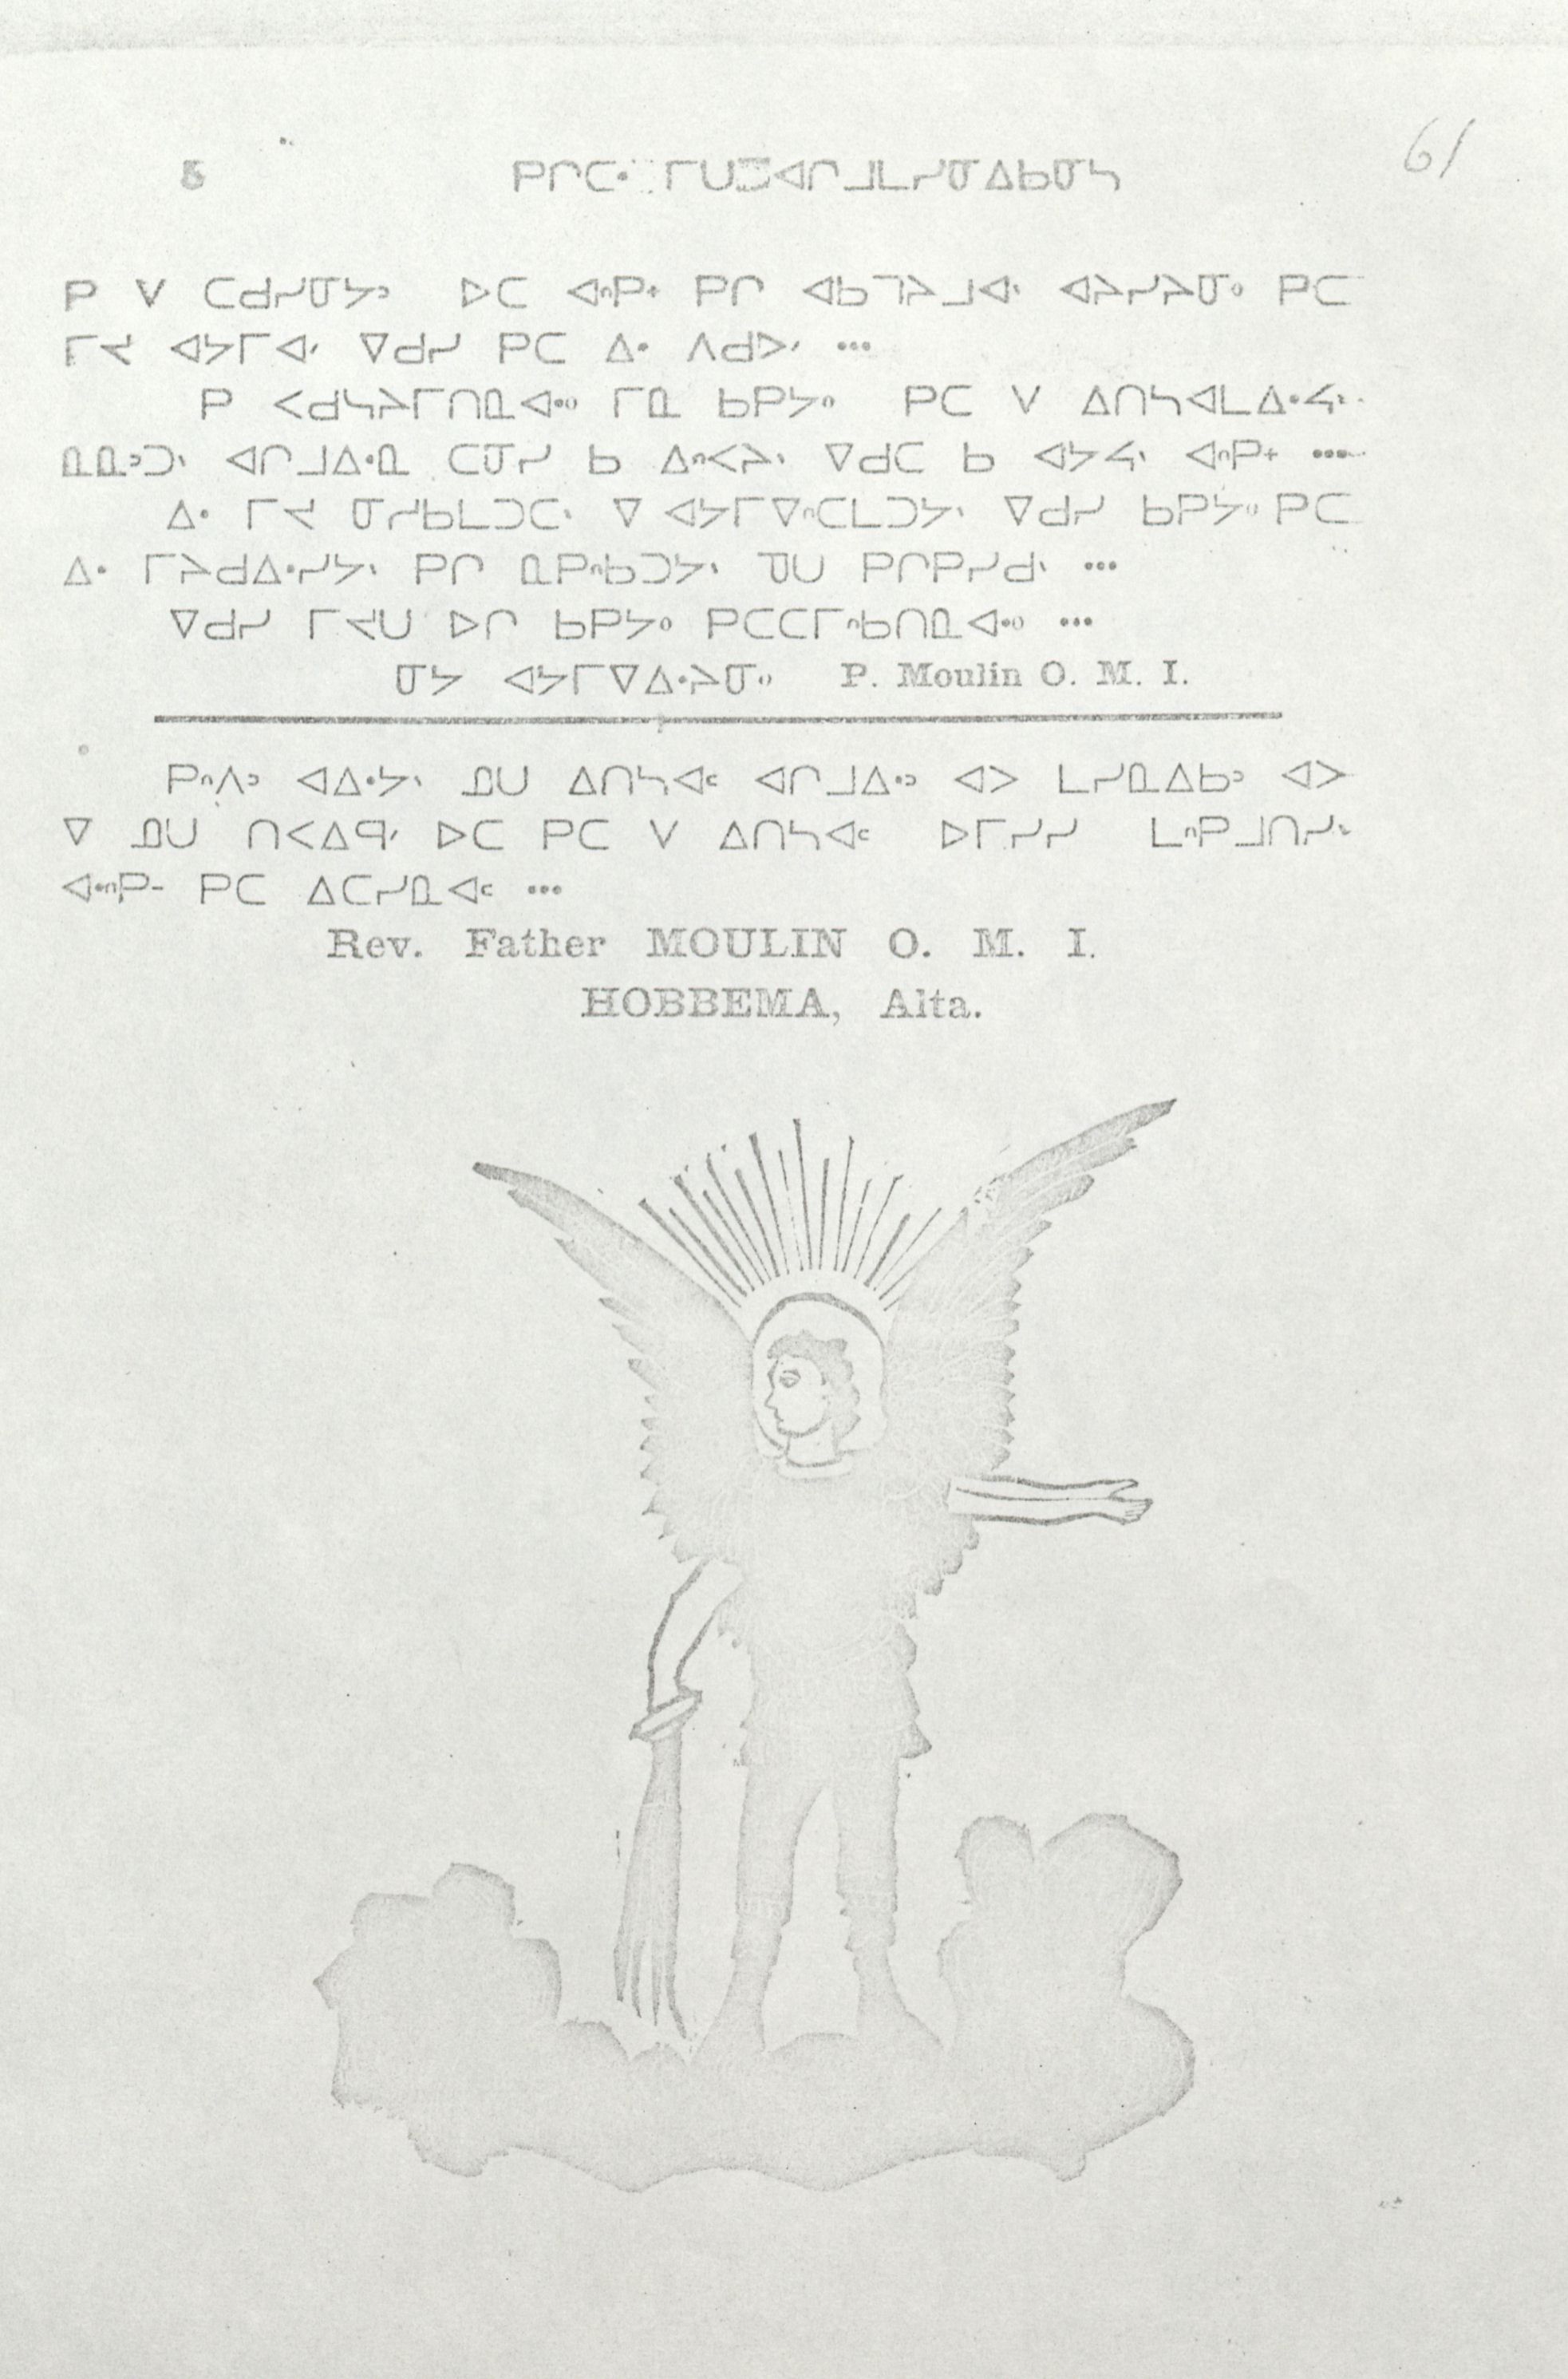 8 ᑭᒋᑕᐧ ᒥᑌᐦᐊᒋᒧᒪᓯᓇᐃᑲᓂᓴ 61
ᑭ ᐯ ᑕᑯᓯᓂᔭᐣ ᐅᑕ ᐊᐢᑭᕀ ᑭᒋ ᐊᑲᒣᔨᒧᐊᐠ ᐊᔨᓯᔨᓂᐤ ᑭᑕ
ᒥᔪ ᐊᔭᒥᐊᐟ ᐁᑯᓯ ᑭᑕ ᐃᐧ ᐱᑯᐅᐟ ...
ᑭ ᐸᑯᓴᔨᒥᑎᓇᐊᐧᐤ ᒥᓇ ᑲᑭᔭᐤ ᑭᑕ ᐯ ᐃᑎᓴᐊᒪᐃᐧᔦᐠ
ᓇᓇᐣᑐᐠ ᐊᒋᒧᐃᐧᓇ ᑕᓂᓯ ᑲ ᐃᐢᐸᔨᐠ ᐁᑯᑕ ᑲ ᐊᔭᔦᐠ ᐊᐢᑭᕀ ...
ᐃᐧ ᒥᔪ ᓂᓯᑲᒪᑐᑕᐠ ᐁ ᐊᔭᒥᐁᐢᑕᒪᑐᔭᐠ ᐁᑯᓯ ᑲᑭᔭᐤ ᑭᑕ
ᐃᐧ ᒥᔨᑯᐃᐧᓯᔭᐠ ᑭᒋ ᓇᑭᐢᑲᑐᔭᐠ ᓀᑌ ᑭᒋᑭᓯᑯᐠ ...
ᐁᑯᓯ ᒥᔪᑌ ᐅᒋ ᑲᑭᔭᐤ ᑭᑕᑕᒥᐢᑲᑎᓇᐊᐧᐤ ...
ᓂᔭ ᐊᔭᒥᐁᐃᐧᔨᓂᐤ P. Moulin O. M. I.
ᑭᐢᐱᐣ ᐊᐃᐧᔭᐠ ᓄᑌ ᐃᑎᓴᐊᒼ ᐊᒋᒧᐃᐧᐣ ᐊᐳ ᒪᓯᓇᐃᑲᐣ ᐊᐳ
ᐁ ᓄᑌ ᑎᐸᐃᑫᐟ ᐅᑕ ᑭᑕ ᐯ ᐃᑎᓴᐊᒼ ᐅᒥᓯᓯ ᒪᐢᑭᒧᑎᓯᐠ
ᐊᐧᐢᑭᐨ ᑭᑕ ᐃᑕᓯᓇᐊᒼ ...
Rev. Father MOULIN O. M. I.
HOBBEMA, Alta.